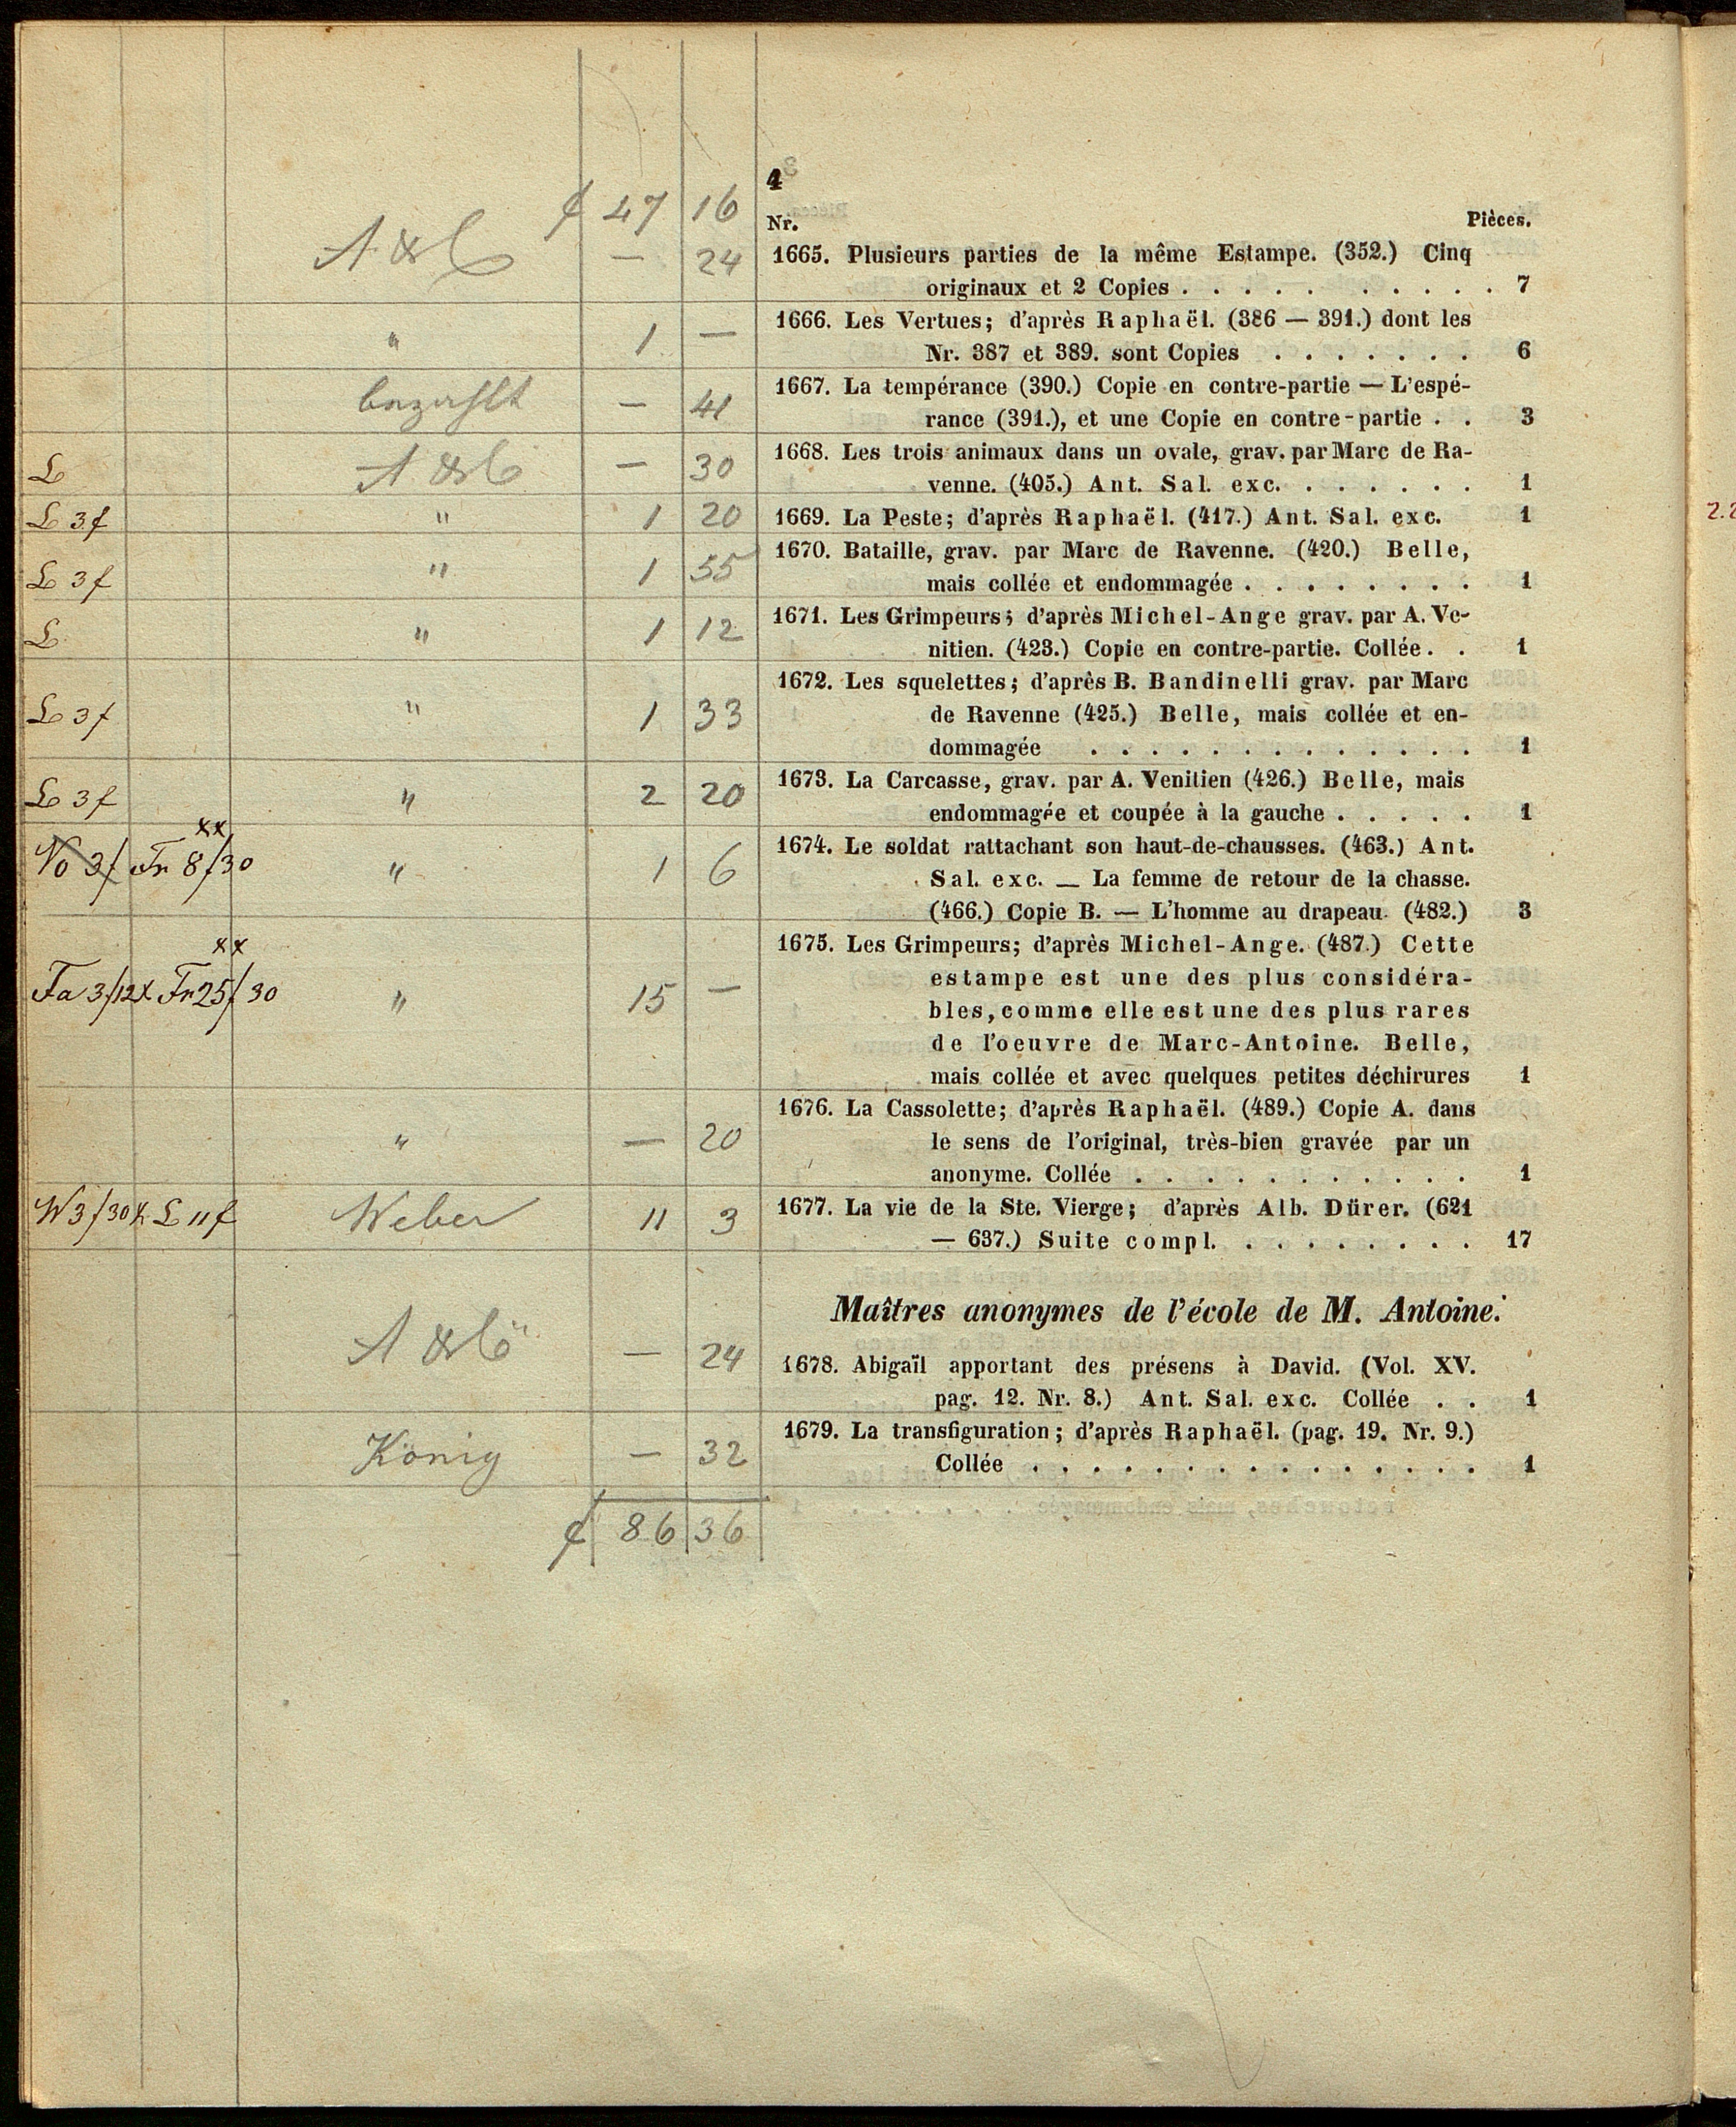 4
f 47 16
Nr. Pièces.
A & C — 24 1665. Plusieurs parties de la même Estampe. (352.) Cinq
originaux et 2 Copies . . . . . . . . . . . 7
" 1 — 1666. Les Vertues; d'après Raphaël. (386 — 391.) dont les
Nr. 387 et 389. sont Copies . . . . . . . 6
bezahlt — 41 1667. La tempérance (390.) Copie en contre-partie — L'espé-
rance (391.), et une Copie en contre-partie . . 3
L A & C — 30 1668. Les trois animaux dans un ovale, grav. par Marc de Ra-
venne. (405.) Ant. Sal. exc. . . . . . . . 1
L 3f " 1 20 1669. La Peste; d'après Raphaël. (417.) Ant. Sal. exc. 1
L 3f " 1 55 1670. Bataille, grav. par Marc de Ravenne. (420.) Belle,
mais collée et endommagée . . . . . . . . 1
L " 1 12 1671. Les Grimpeurs; d'après Michel-Ange grav. par A. Ve-
nitien. (423.) Copie en contre-partie. Collée. . 1
1672. Les squelettes; d'après B. Bandinelli grav. par Marc
L 3f " 1 33 de Ravenne (425.) Belle, mais collée et en-
dommagée . . . . . . . . . . . . . 1
L 3f " 2 20 1673. La Carcasse, grav. par A. Venitien (426.) Belle, mais
endommagée et coupée à la gauche . . . . . 1
xx
No 3f Fr 8f30 " 1 6 1674. Le soldat rattachant son haut-de-chausses. (463.) Ant.
Sal. exc. — La femme de retour de la chasse.
(466.) Copie B. — L'homme au drapeau. (482.) 3
xx
1675. Les Grimpeurs; d'après Michel-Ange. (487.) Cette
estampe est une des plus considéra-
Fa 3f12x Fr 25f30 " 15 — bles, comme elle est une des plus rares
de l'oeuvre de Marc-Antoine. Belle,
mais collée et avec quelques petites déchirures 1
1676. La Cassolette; d'après Raphaël. (489.) Copie A. dans
" — 20 le sens de l'original, très-bien gravée par un
anonyme. Collée . . . . . . . . . . . 1
W 3f30x L 11f Weber 11 3 1677. La vie de la Ste. Vierge; d'après Alb. Dürer. (621
— 637.) Suite compl. . . . . . . . . 17
Maîtres anonymes de l'école de M. Antoine.
A & C — 24 1678. Abigaïl apportant des présens à David. (Vol. XV.
pag. 12. Nr. 8.) Ant. Sal. exc. Collée . . 1
König — 32 1679. La transfiguration; d'après Raphaël. (pag. 19. Nr. 9.)
Collée . . . . . . . . . . . . . . . 1
f 86 36